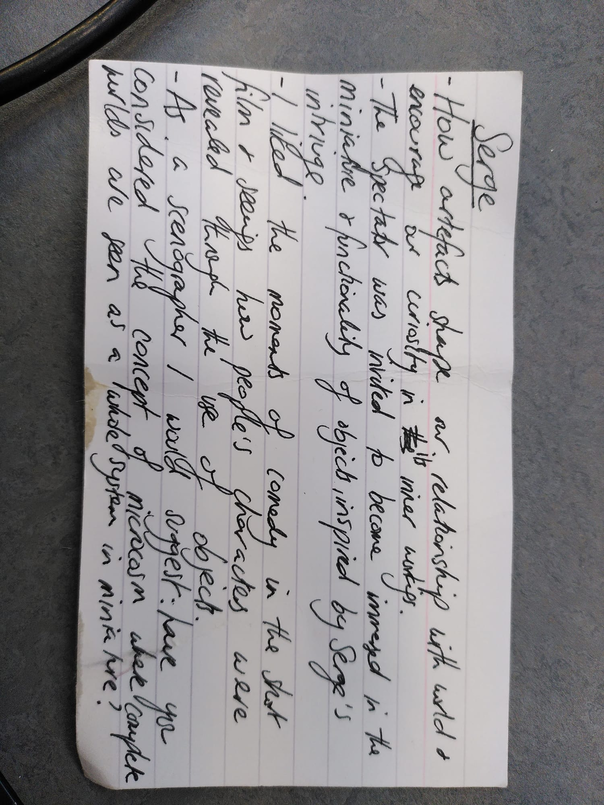 Serge
- How artefacts shape our relationship with world &
encourage our curiosity in its inner workings.
- The spectator was invited to become immersed in the
miniature & functionality of objects, inspired by Serge's
intrigue.
- I liked the moments of comedy in the short
film & seeing how people's characters were
revealed through the use of objects.
- As a scenographer I would suggest: have you
considered the concept of microcosm where complete
worlds are seen as a whole system in miniature?